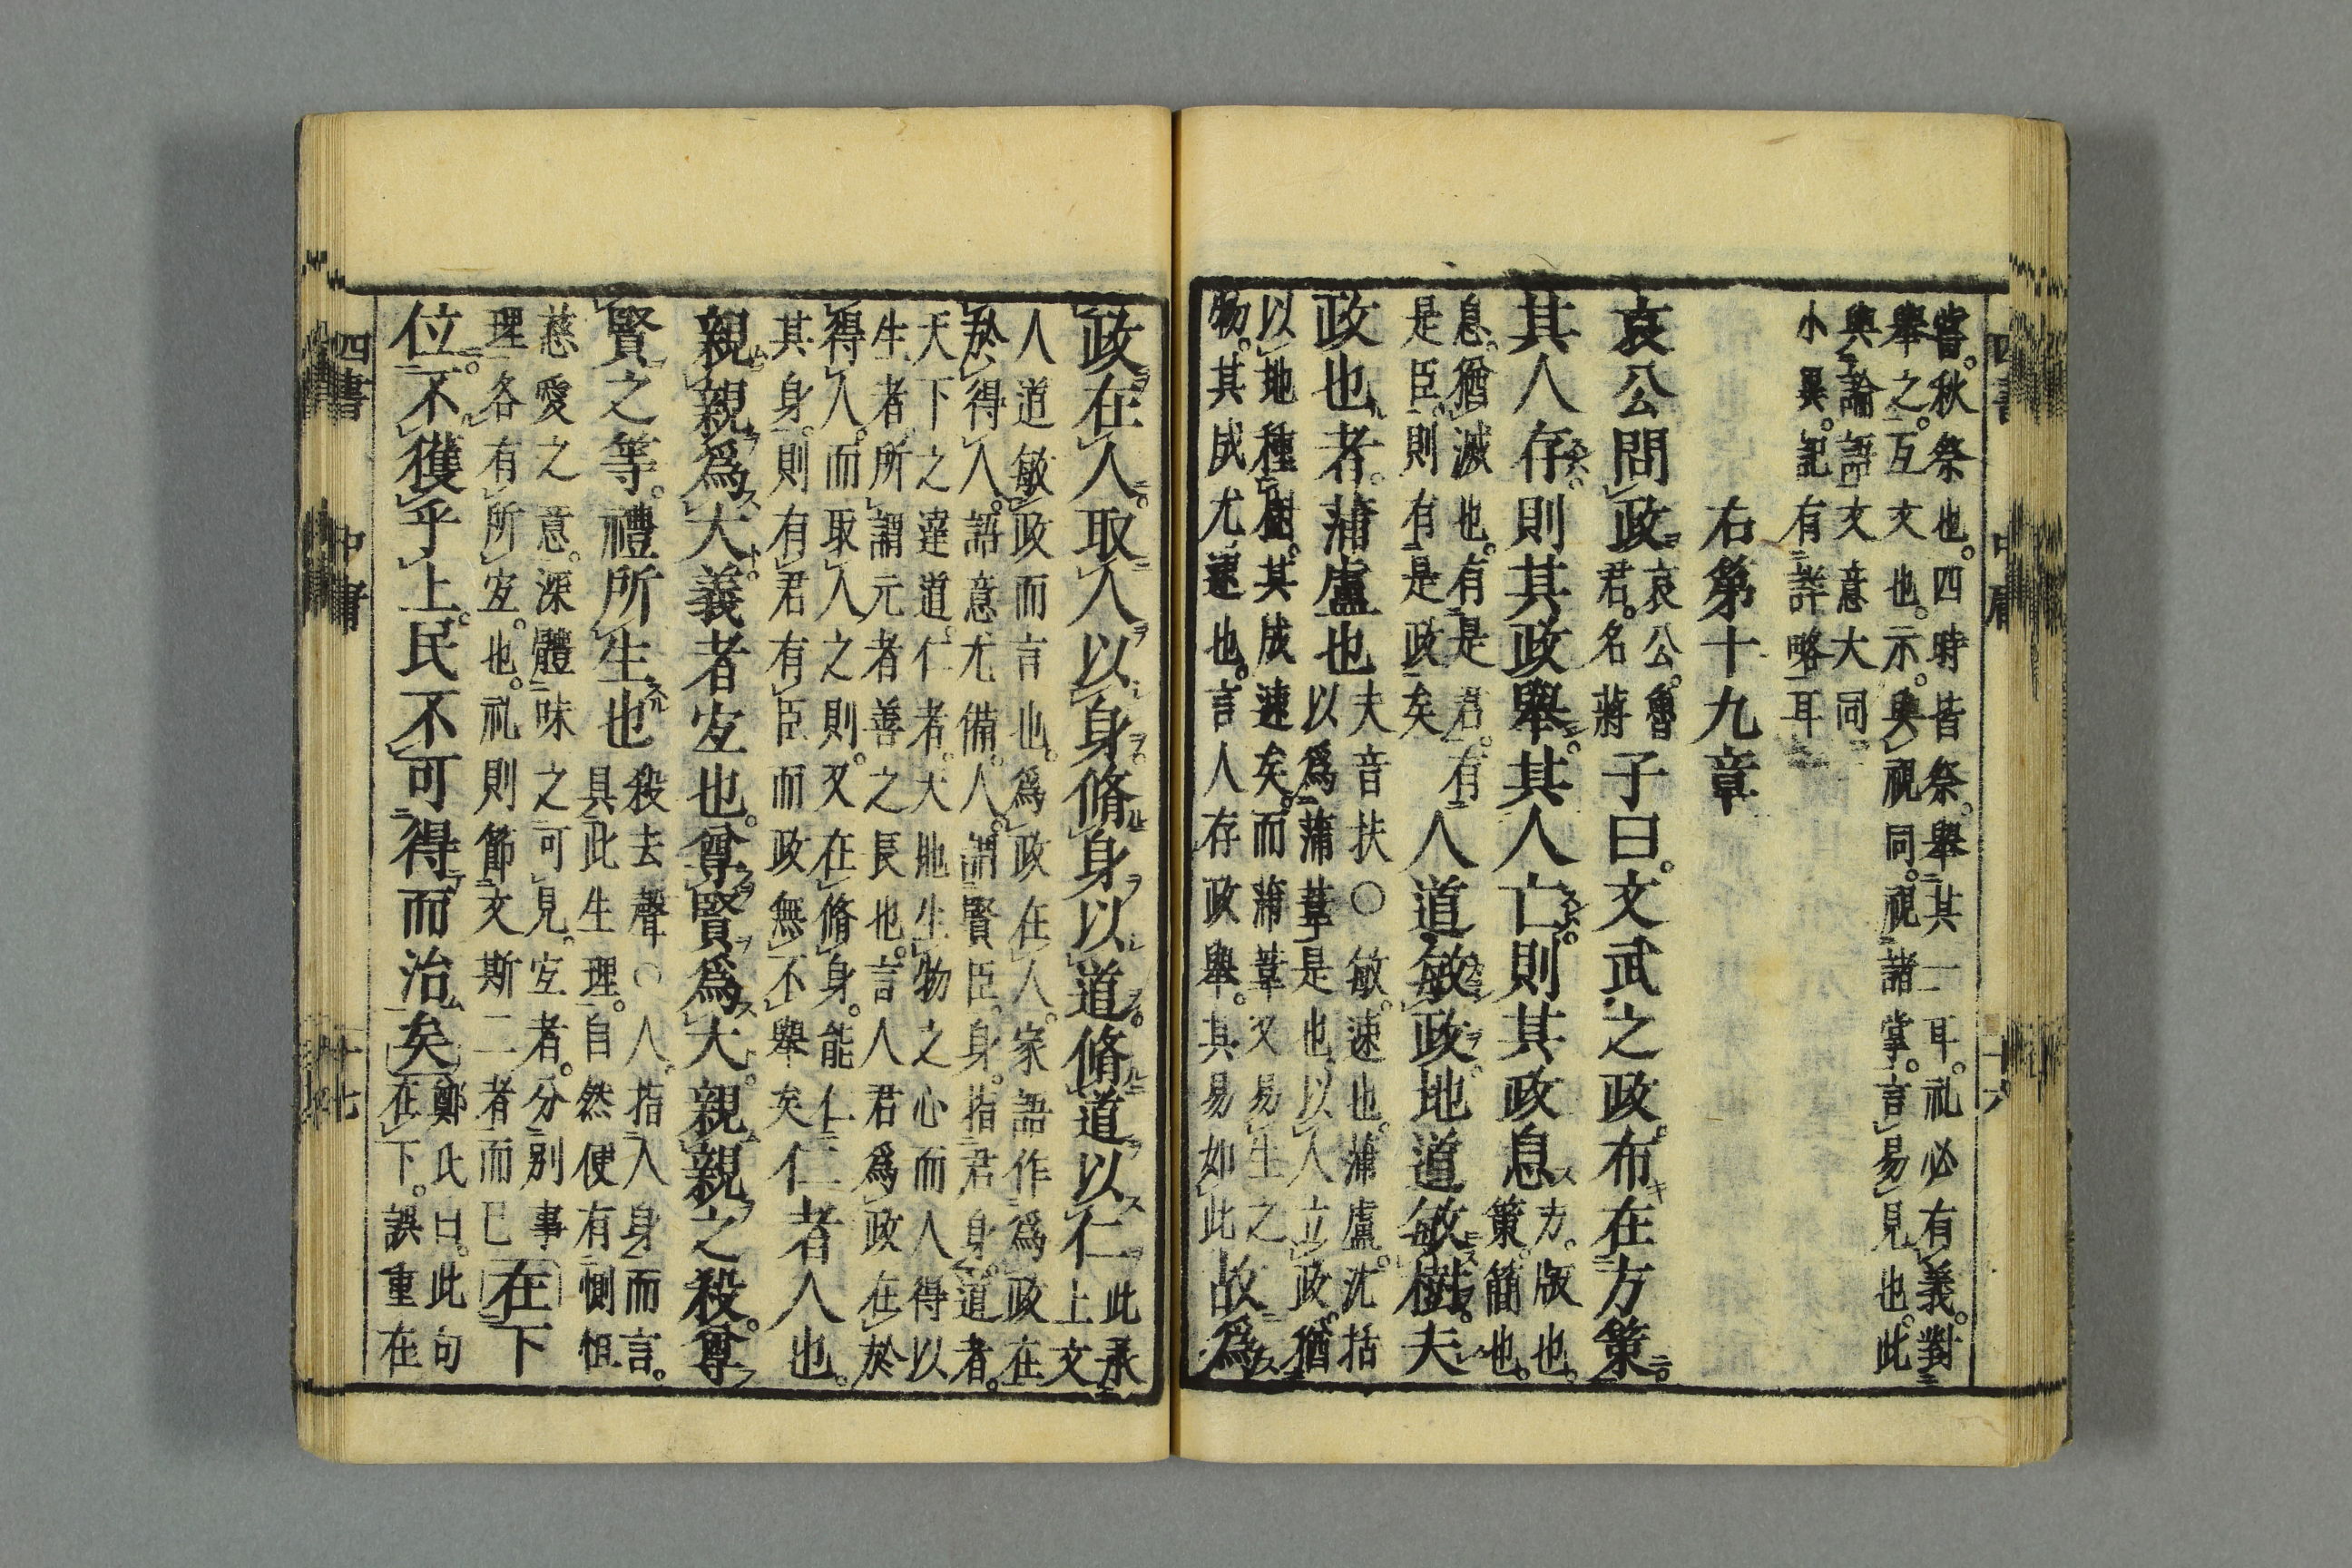 四書 中庸 十六
嘗。秋祭也。四時皆祭。舉其一耳。礼必有義。對
舉之。互文也。示。與視同。視諸掌。言易見也。此
與論語文意大同
小異。記有詳略耳
右第十九章
哀公問政
哀公。魯
君。名蔣
子曰。文武之政。布在方策。
其人存。則其政舉。其人亡。則其政息
方。版也。
策。簡也。
息。猶滅也。有是君。有
是臣。則有是政矣
人道敏政。地道敏樹。夫
政也者。蒲盧也
夫音扶○敏。速也。蒲盧。沈括
以爲蒲葦是也。以人立政。猶
以地種樹。其成速矣。而蒲葦又易生之
物。其成尤速也。言人存政舉。其易如此
故爲
政在人。取人以身。脩身以道。脩道以仁
此承
上文
人道敏政而言也。爲政在人。家語作爲政在
於得人。語意尤備。人。謂賢臣。身。指君身。道者。
天下之達道。仁者。天地生物之心而人得以
生者。所謂元者善之長也。言人君爲政在於
得人。而取人之則。又在脩身。能仁
其身。則有君有臣而政無不舉矣
仁者人也。
親親爲大。義者宐也。尊賢爲大。親親之殺。尊
賢之等。禮所生也
殺去聲○人。指人身而言。
具此生理。自然便有惻怛
慈愛之意。深體味之可見。宐者。分別事
理各有所宐也。礼則節文斯二者而已
在下
位。不獲乎上。民不可得而治矣
鄭氏曰。此句
在下。誤重在
四書 中庸 十七